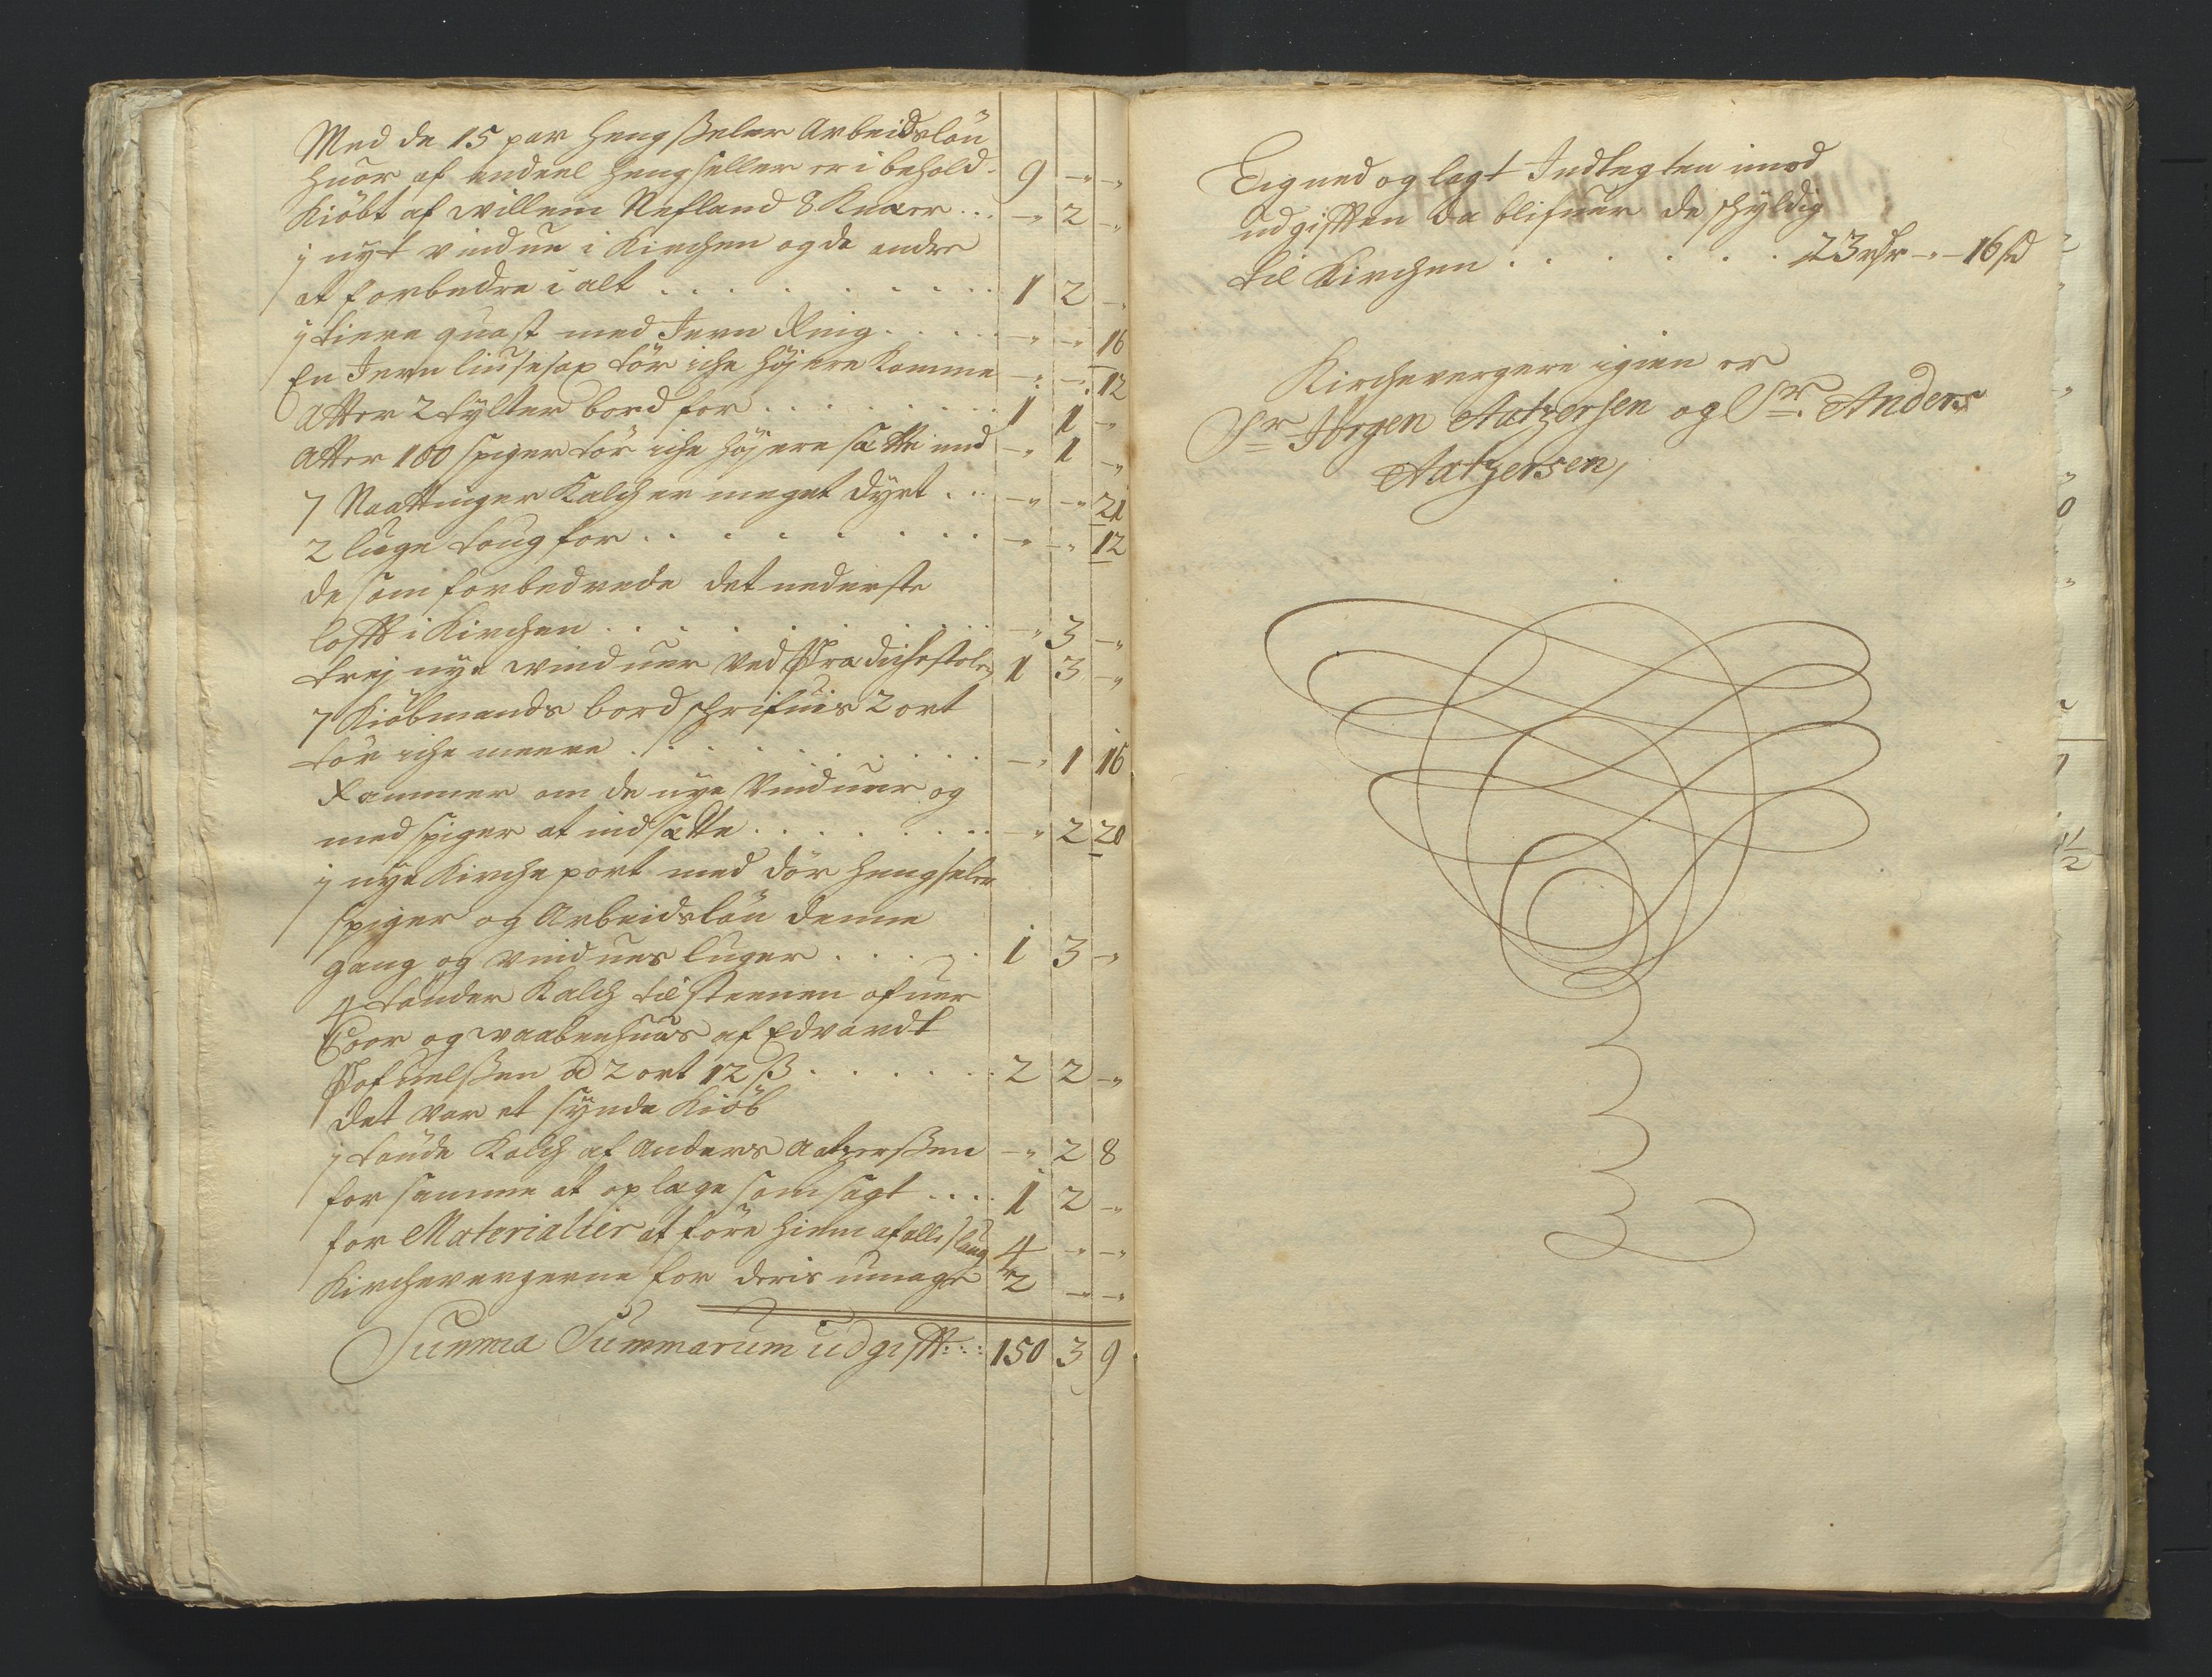 Med de 15 par Hengßeler Arbeidslön
huor af endeel Hengseller er i behold. 9 - -
Kiöbt af Willem Nefland 8 Knæer . . . - 2 -
j nyt vindue i Kirchen og de andre
at forbedre i alt . . . . . . . . . . 1 2 -
j tiere quast med Jern Ring . . . . - - 16
En Jern liusesax tör iche höjere komme - - 12
Atter 2 tylter bord for . . . . . . . . 1 1 -
Atter 100 spiger tör iche höjere sætte end - 1 -
7 Kalch er meget dyrt . . - - 21
2 luge toug for . . . . . . . . - - 12
de som forbedrede det nederste
lofft i Kirchen . . . . . . . . . - 3 -
trej nye winduer ved Prædichestolen 1 3 -
7 Kiöbmands bord schrifuis 2 ort
tör iche meere . . . . . . . . . - 1 16
Rammer om de nye Vinduer og
med spiger at indsætte . . . . . . . . - 2 20
j nye Kirche port med dör hengseler
spiger og Arbeidslön denne
gang og vindues luger . . . . . 1 3 -
4 tönder Kalch til steenen ofuer
Coor og vaabenhuus af Edvardt
Pofuelßen à 2 ort 12 ß . . . . . . . 2 2 -
det var et synde Kiöb
j tönde Kalch af Anders Aatzerßen - 2 8
for samme at oplæge som sagt . . . . 1 2 -
for Materialier at före hiem af alle slaug 4 - -
Kirchevergerne for deris umage 2 - -
Summa Summarum udgifft . : . : 150 3 9
Eigned og lagt Indtegten imod
udgifften da blifuer de schyldig
til Kirchen . . . . . . . 23 rdr - - 16 ß d
Kirchevergere igien er
Sr Jörgen Aatzersen og Sr. Anders
Aatzersen,